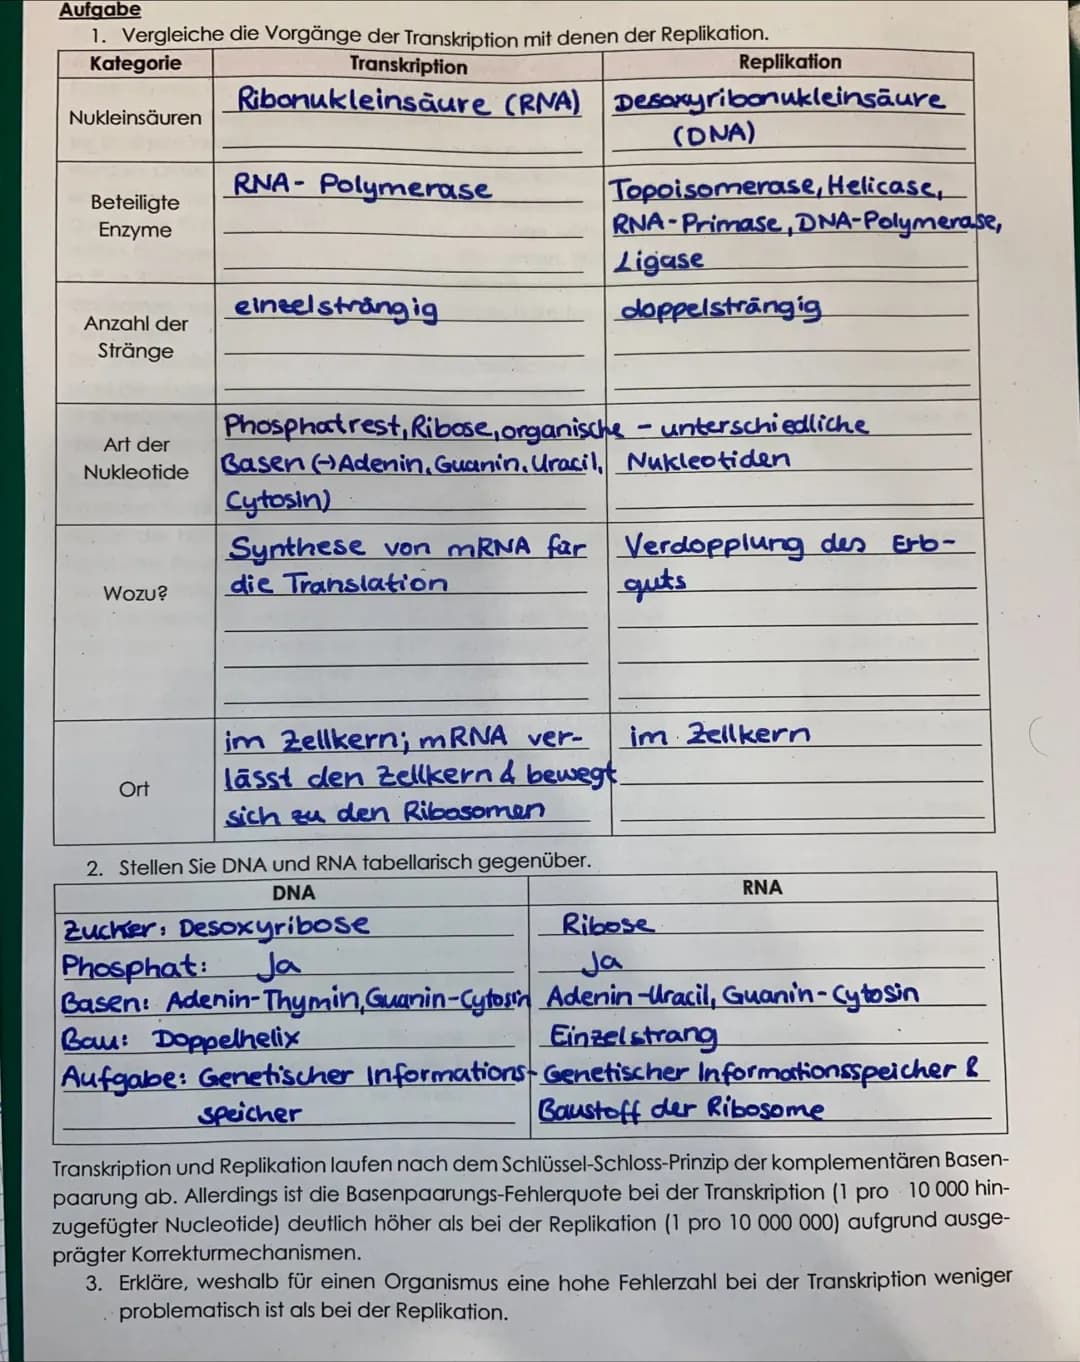 Aufgabe
1. Vergleiche die Vorgänge der Transkription mit denen der Replikation.
Kategorie Transkription Replikation
Nukleinsäuren
Ribonukleinsäure (RNA)
Desoxyribonukleinsäure
(DNA)
Beteiligte
Enzyme
RNA- Polymerase
Topoisomerase, Helicase,
RNA-Primase, DNA-Polymerase,
Ligase
Anzahl der
Stränge
einzelsträngig
doppelsträngig
Art der
Nukleotide
Phosphatrest, Ribose, organische
Basen (→Adenin, Guanin, Uracil,
Cytosin)
- unterschiedliche
Nukleotiden
Wozu?
Synthese von mRNA für
die Translation
Verdopplung des Erb-
guts
Ort
im Zellkern; mRNA ver-
lässt den Zellkern & bewegt
sich zu den Ribosomen
im Zellkern
2. Stellen Sie DNA und RNA tabellarisch gegenüber.
DNA RNA
Zucker: Desoxyribose Ribose
Phosphat: Ja Ja
Basen: Adenin-Thymin, Guanin-Cytosin Adenin-Uracil, Guanin-Cytosin
Bau: Doppelhelix Einzelstrang
Aufgabe: Genetischer Informations- Genetischer Informationsspeicher &
speicher Baustoff der Ribosome
Transkription und Replikation laufen nach dem Schlüssel-Schloss-Prinzip der komplementären Basen-
paarung ab. Allerdings ist die Basenpaarungs-Fehlerquote bei der Transkription (1 pro 10 000 hin-
zugefügter Nucleotide) deutlich höher als bei der Replikation (1 pro 10 000 000) aufgrund ausge-
prägter Korrekturmechanismen.
3. Erkläre, weshalb für einen Organismus eine hohe Fehlerzahl bei der Transkription weniger
problematisch ist als bei der Replikation.